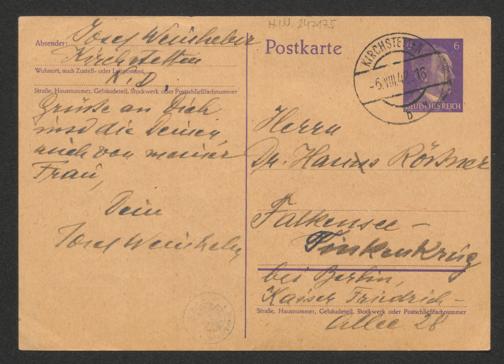 H.I.N. 242175
Absender: Josef Weinheber
Kirchstetten
Wohnort, auch Zustell- oder Leitpostamt
N. D.
Straße, Hausnummer, Gebäudeteil, Stockwerk oder Postschließfachnummer
Grüße an Dich
und die Deinen
auch von meiner
Frau,
Dein
Josef Weinheber
Postkarte
KIRCHSTETTEN
-6.VIII.4 -16
b
6
DEUTSCHES REICH
Herrn
Dr. Hanns Rössner
Falkensee-
Finkenkrug
bei Berlin,
Kaiser Friedrich-
Straße, Hausnummer, Gebäudeteil, Stockwerk oder Postschließfachnummer
Allee 28